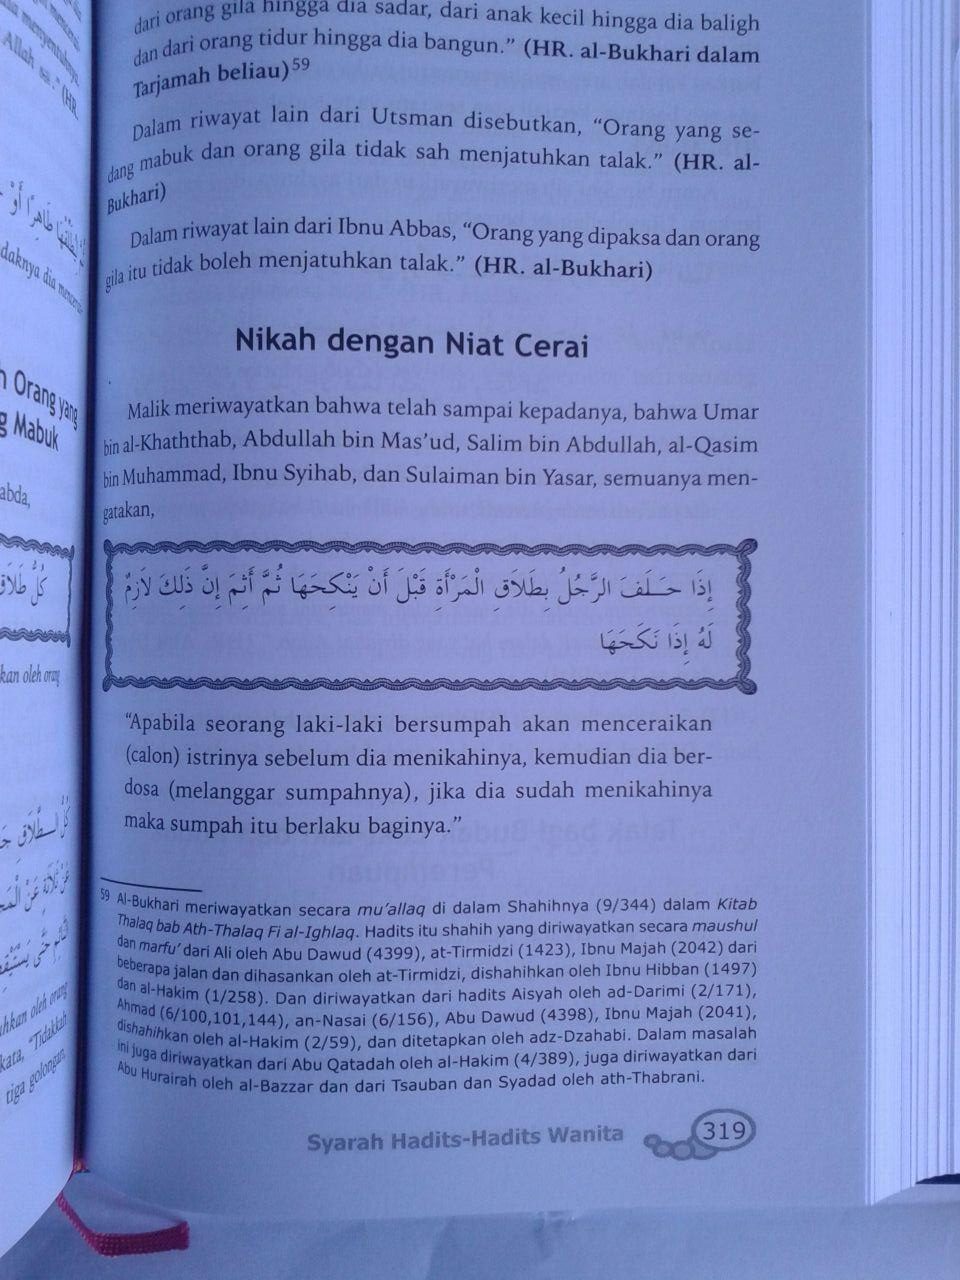 dari orang gila hingga dia sadar, dari anak kecil hingga dia baligh
dan dari orang tidur hingga dia bangun.” (HR. al-Bukhari dalam
Tarjamah beliau)59
Dalam riwayat lain dari Utsman disebutkan, “Orang yang se-
dang mabuk dan orang gila tidak sah menjatuhkan talak.” (HR. al-
Bukhari)
Dalam riwayat lain dari Ibnu Abbas, “Orang yang dipaksa dan orang
gila itu tidak boleh menjatuhkan talak.” (HR. al-Bukhari)
Nikah dengan Niat Cerai
Malik meriwayatkan bahwa telah sampai kepadanya, bahwa Umar
bin al-Khaththab, Abdullah bin Mas’ud, Salim bin Abdullah, al-Qasim
bin Muhammad, Ibnu Syihab, dan Sulaiman bin Yasar, semuanya men-
gatakan,
إِذَا حَلَفَ الرَّجُلُ بِطَلَاقِ الْمَرْأَةِ قَبْلَ أَنْ يَنْكِحَهَا ثُمَّ أَثِمَ إِنَّ ذَلِكَ لَازِمٌ
لَهُ إِذَا نَكَحَهَا
“Apabila seorang laki-laki bersumpah akan menceraikan
(calon) istrinya sebelum dia menikahinya, kemudian dia ber-
dosa (melanggar sumpahnya), jika dia sudah menikahinya
maka sumpah itu berlaku baginya.”
59 Al-Bukhari meriwayatkan secara mu’allaq di dalam Shahihnya (9/344) dalam Kitab
Thalaq bab Ath-Thalaq Fi al-Ighlaq. Hadits itu shahih yang diriwayatkan secara maushul
dan marfu’ dari Ali oleh Abu Dawud (4399), at-Tirmidzi (1423), Ibnu Majah (2042) dari
beberapa jalan dan dihasankan oleh at-Tirmidzi, dishahihkan oleh Ibnu Hibban (1497)
dan al-Hakim (1/258). Dan diriwayatkan dari hadits Aisyah oleh ad-Darimi (2/171),
Ahmad (6/100,101,144), an-Nasai (6/156), Abu Dawud (4398), Ibnu Majah (2041),
dishahihkan oleh al-Hakim (2/59), dan ditetapkan oleh adz-Dzahabi. Dalam masalah
ini juga diriwayatkan dari Abu Qatadah oleh al-Hakim (4/389), juga diriwayatkan dari
Abu Hurairah oleh al-Bazzar dan dari Tsauban dan Syadad oleh ath-Thabrani.
Syarah Hadits-Hadits Wanita 319